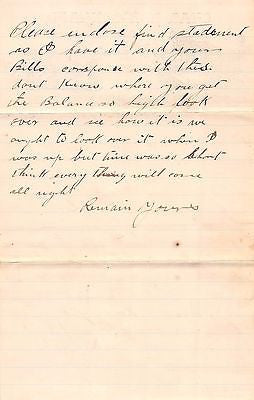 Please inclose find statement
as I have it and your
Bills corsponce with this
dont Know where you get
the Balance so high look
over and see how it is we
ought to look over it when I
was up but time was so short
think every thing will come
all right
Remain Yours